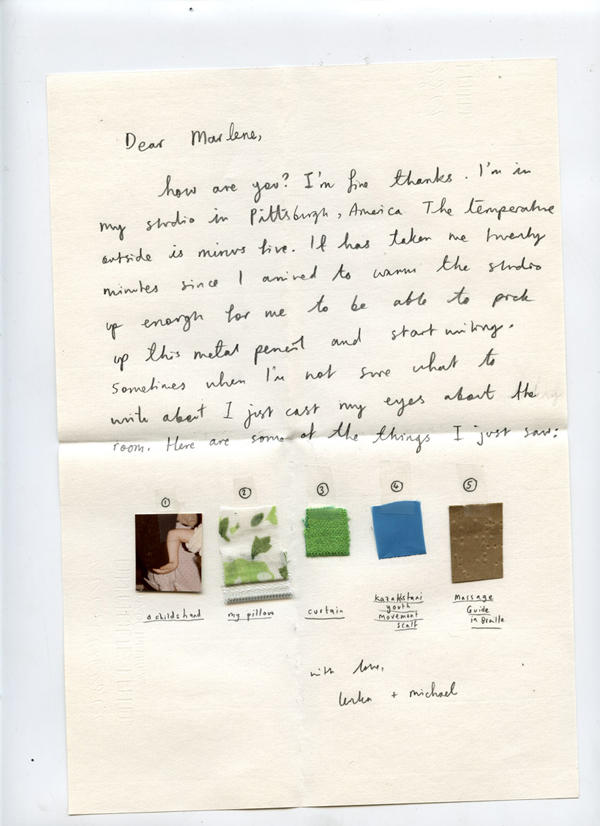 Dear Marlene,
how are you? I'm fine thanks. I'm in
my studio in Pittsburgh, America The temperature
outside is minus five. It has taken me twenty
minutes since I arrived to warm the studio
up enough for me to be able to pick
up this metal pencil and start writing.
Sometimes when I'm not sure what to
write about I just cast my eyes about the
room. Here are some of the things I just saw:
① ② ③ ④ ⑤
a childs hand
my pillow
curtain
Kazakhstani
youth
movement
scarf
Massage
Guide
in Braille
with love,
lenka + michael